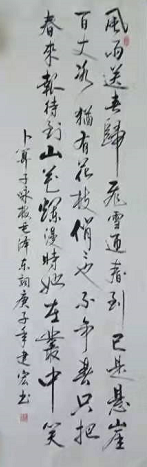 風雨送春歸飛雪迎春到已是懸崖
百丈冰猶有花枝俏々也不争春只把
春來報待到山花爛漫時她在叢中笑
卜算子咏梅毛泽东詞庚子年建宏书